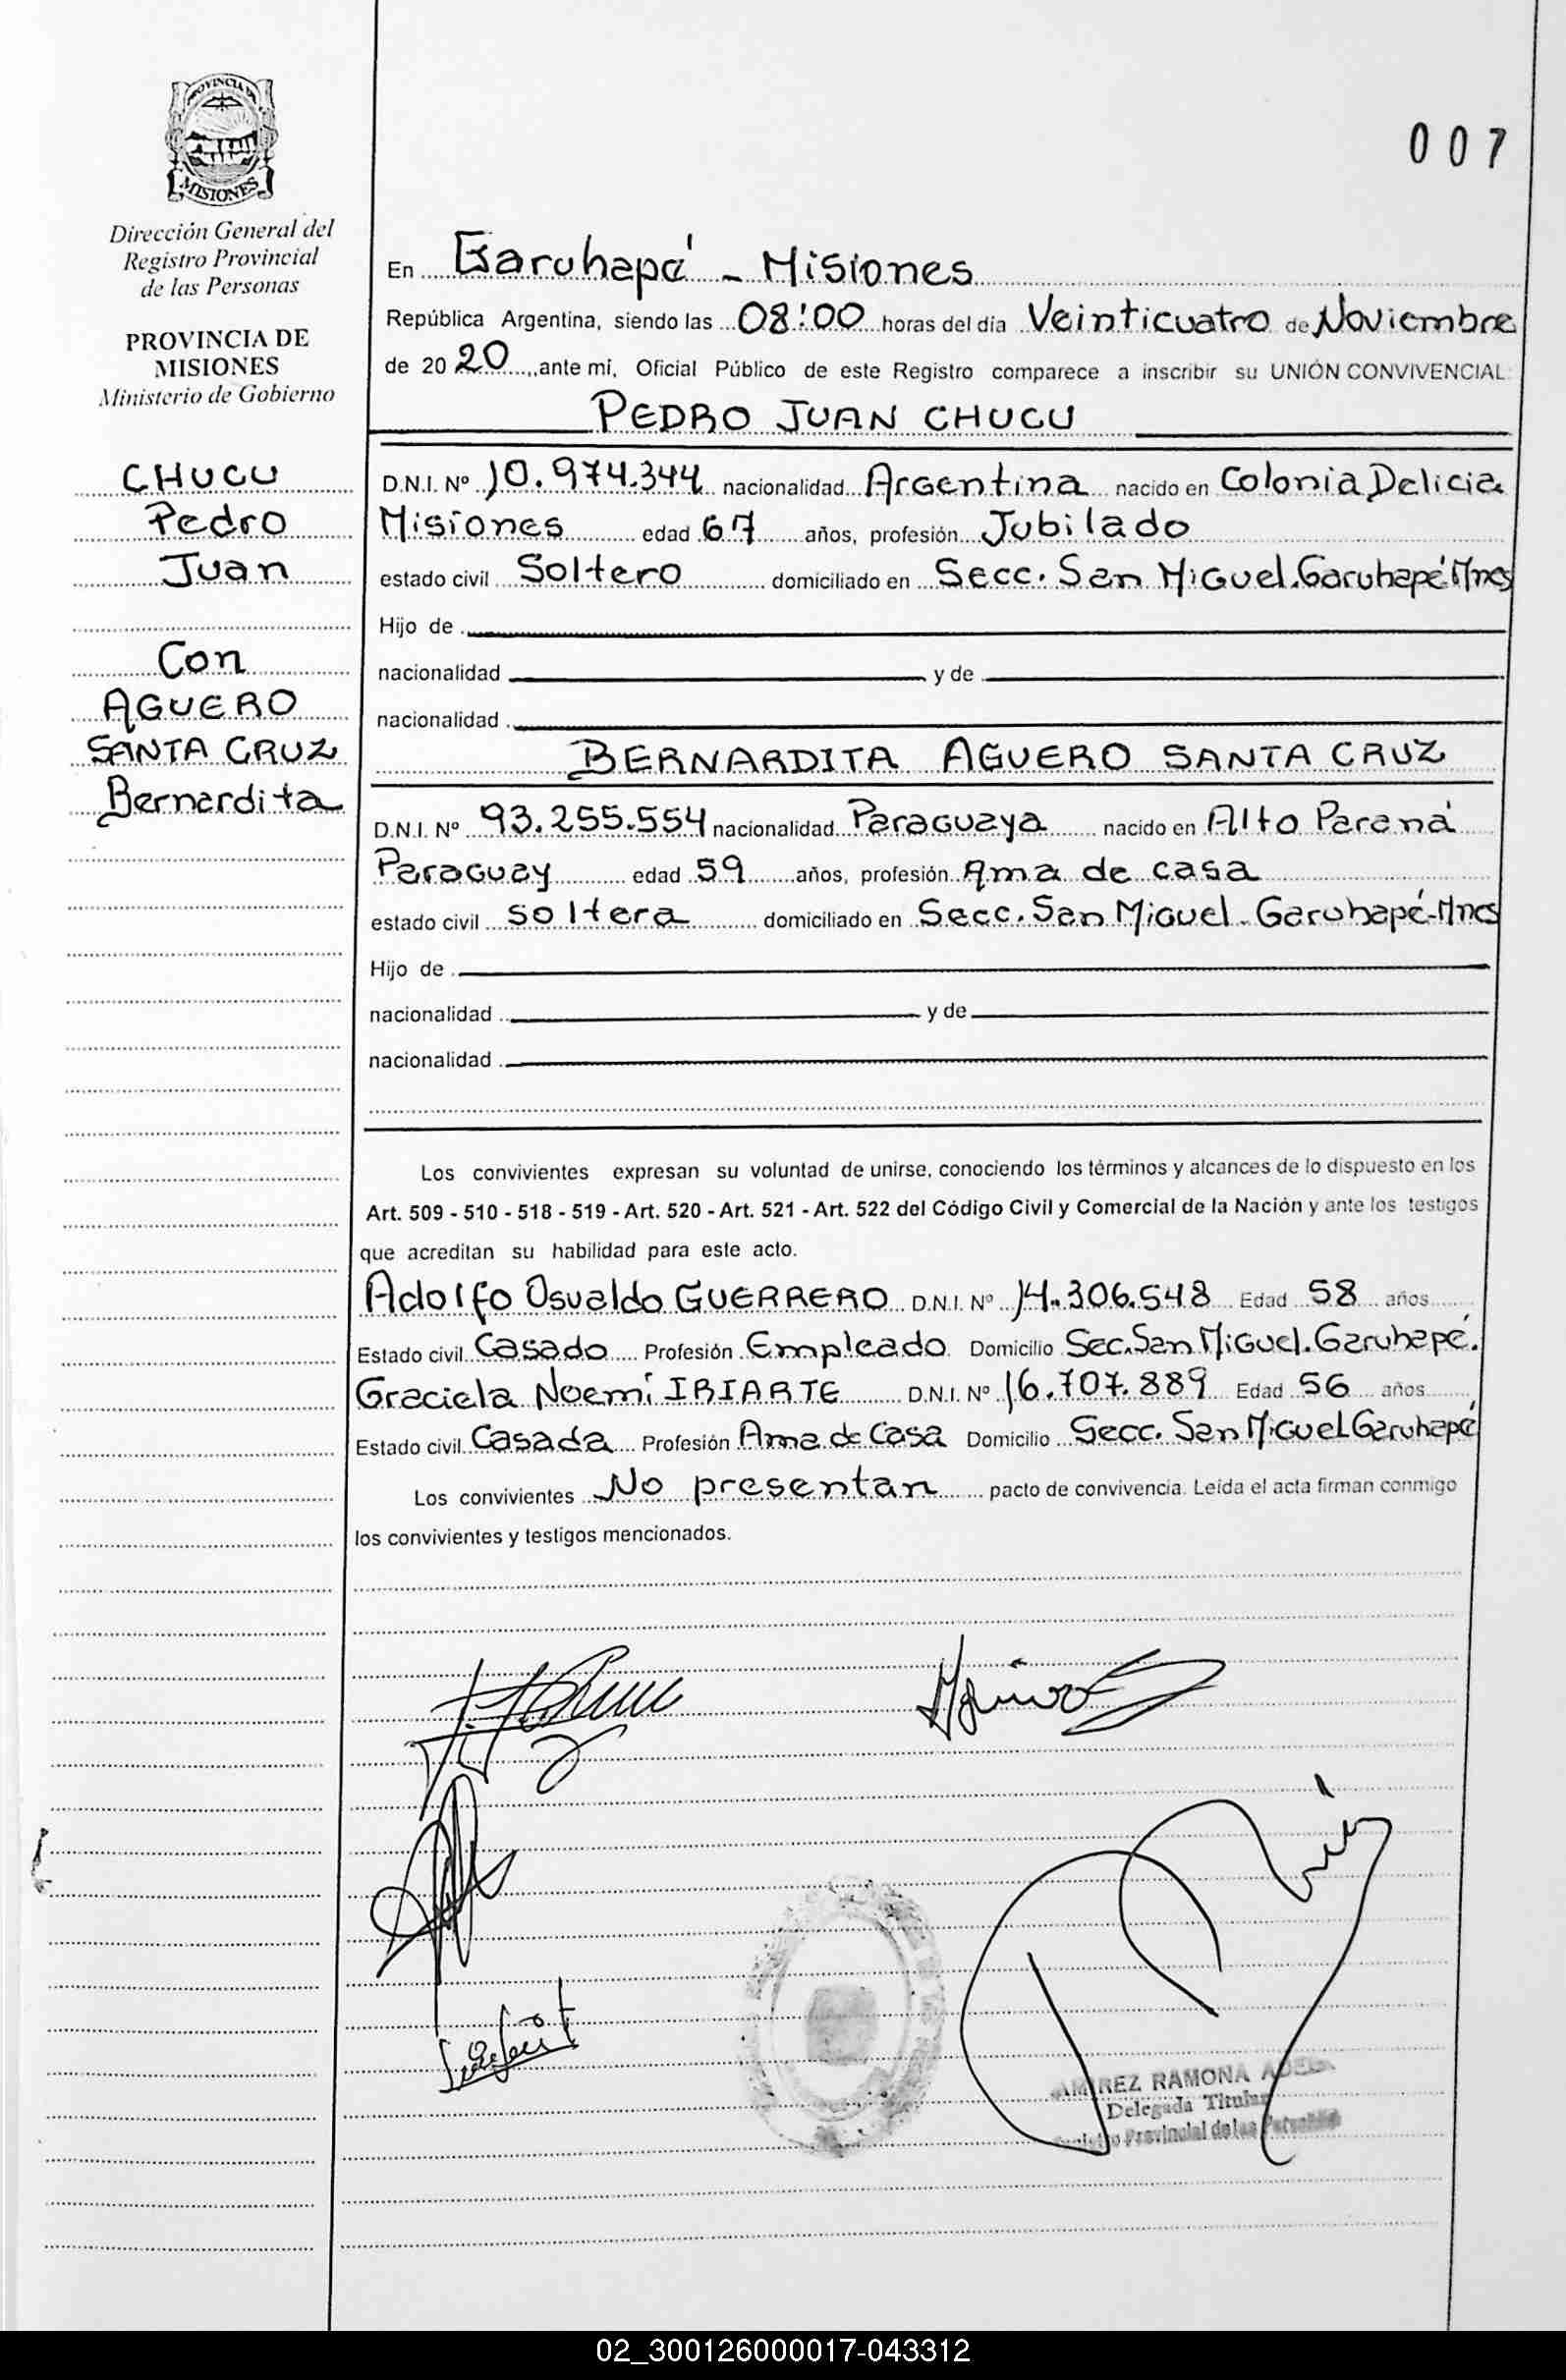 PROVINCIA DE
MISIONES
Dirección General del
Registro Provincial
de las Personas
PROVINCIA DE
MISIONES
Ministerio de Gobierno
CHUCU
Pedro
Juan
Con
AGUERO
SANTA CRUZ
Bernardita
007
En Garuhapé - Misiones
República Argentina, siendo las 08:00 horas del día Veinticuatro de Noviembre
de 20 20, ante mí, Oficial Público de este Registro comparece a inscribir su UNIÓN CONVIVENCIAL:
PEDRO JUAN CHUCU
D.N.I. Nº 10.974.344 nacionalidad Argentina nacido en Colonia Delicia
Misiones edad 67 años, profesión Jubilado
estado civil Soltero domiciliado en Secc. San Miguel. Garuhapé Mnes
Hijo de
nacionalidad y de
nacionalidad
BERNARDITA AGUERO SANTA CRUZ
D.N.I. Nº 93.255.554 nacionalidad Paraguaya nacido en Alto Paraná
Paraguay edad 59 años, profesión Ama de casa
estado civil soltera domiciliado en Secc. San Miguel - Garuhapé-Mnes
Hijo de
nacionalidad y de
nacionalidad
Los convivientes expresan su voluntad de unirse, conociendo los términos y alcances de lo dispuesto en los
Art. 509 - 510 - 518 - 519 - Art. 520 - Art. 521 - Art. 522 del Código Civil y Comercial de la Nación y ante los testigos
que acreditan su habilidad para este acto.
Adolfo Osvaldo GUERRERO D.N.I. Nº 14.306.548 Edad 58 años
Estado civil Casado Profesión Empleado Domicilio Sec. San Miguel. Garuhapé.
Graciela Noemí IRIARTE D.N.I. Nº 16.707.889 Edad 56 años
Estado civil Casada Profesión Ama de Casa Domicilio Secc. San Miguel Garuhapé
Los convivientes No presentan pacto de convivencia. Leída el acta firman conmigo
los convivientes y testigos mencionados.
RAMONA
Delegada Titular
Provincial de las
02_300126000017-043312